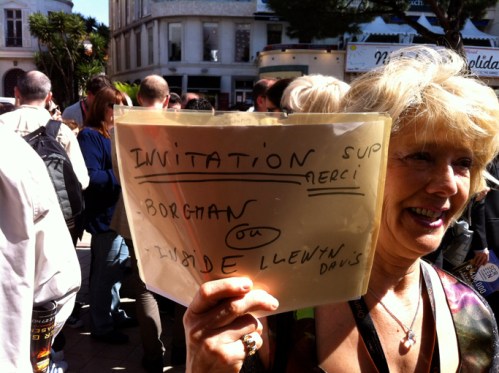 INVITATION SUP
MERCI
- BORGMAN
OU
- INSIDE LLEWYN
DAVIS